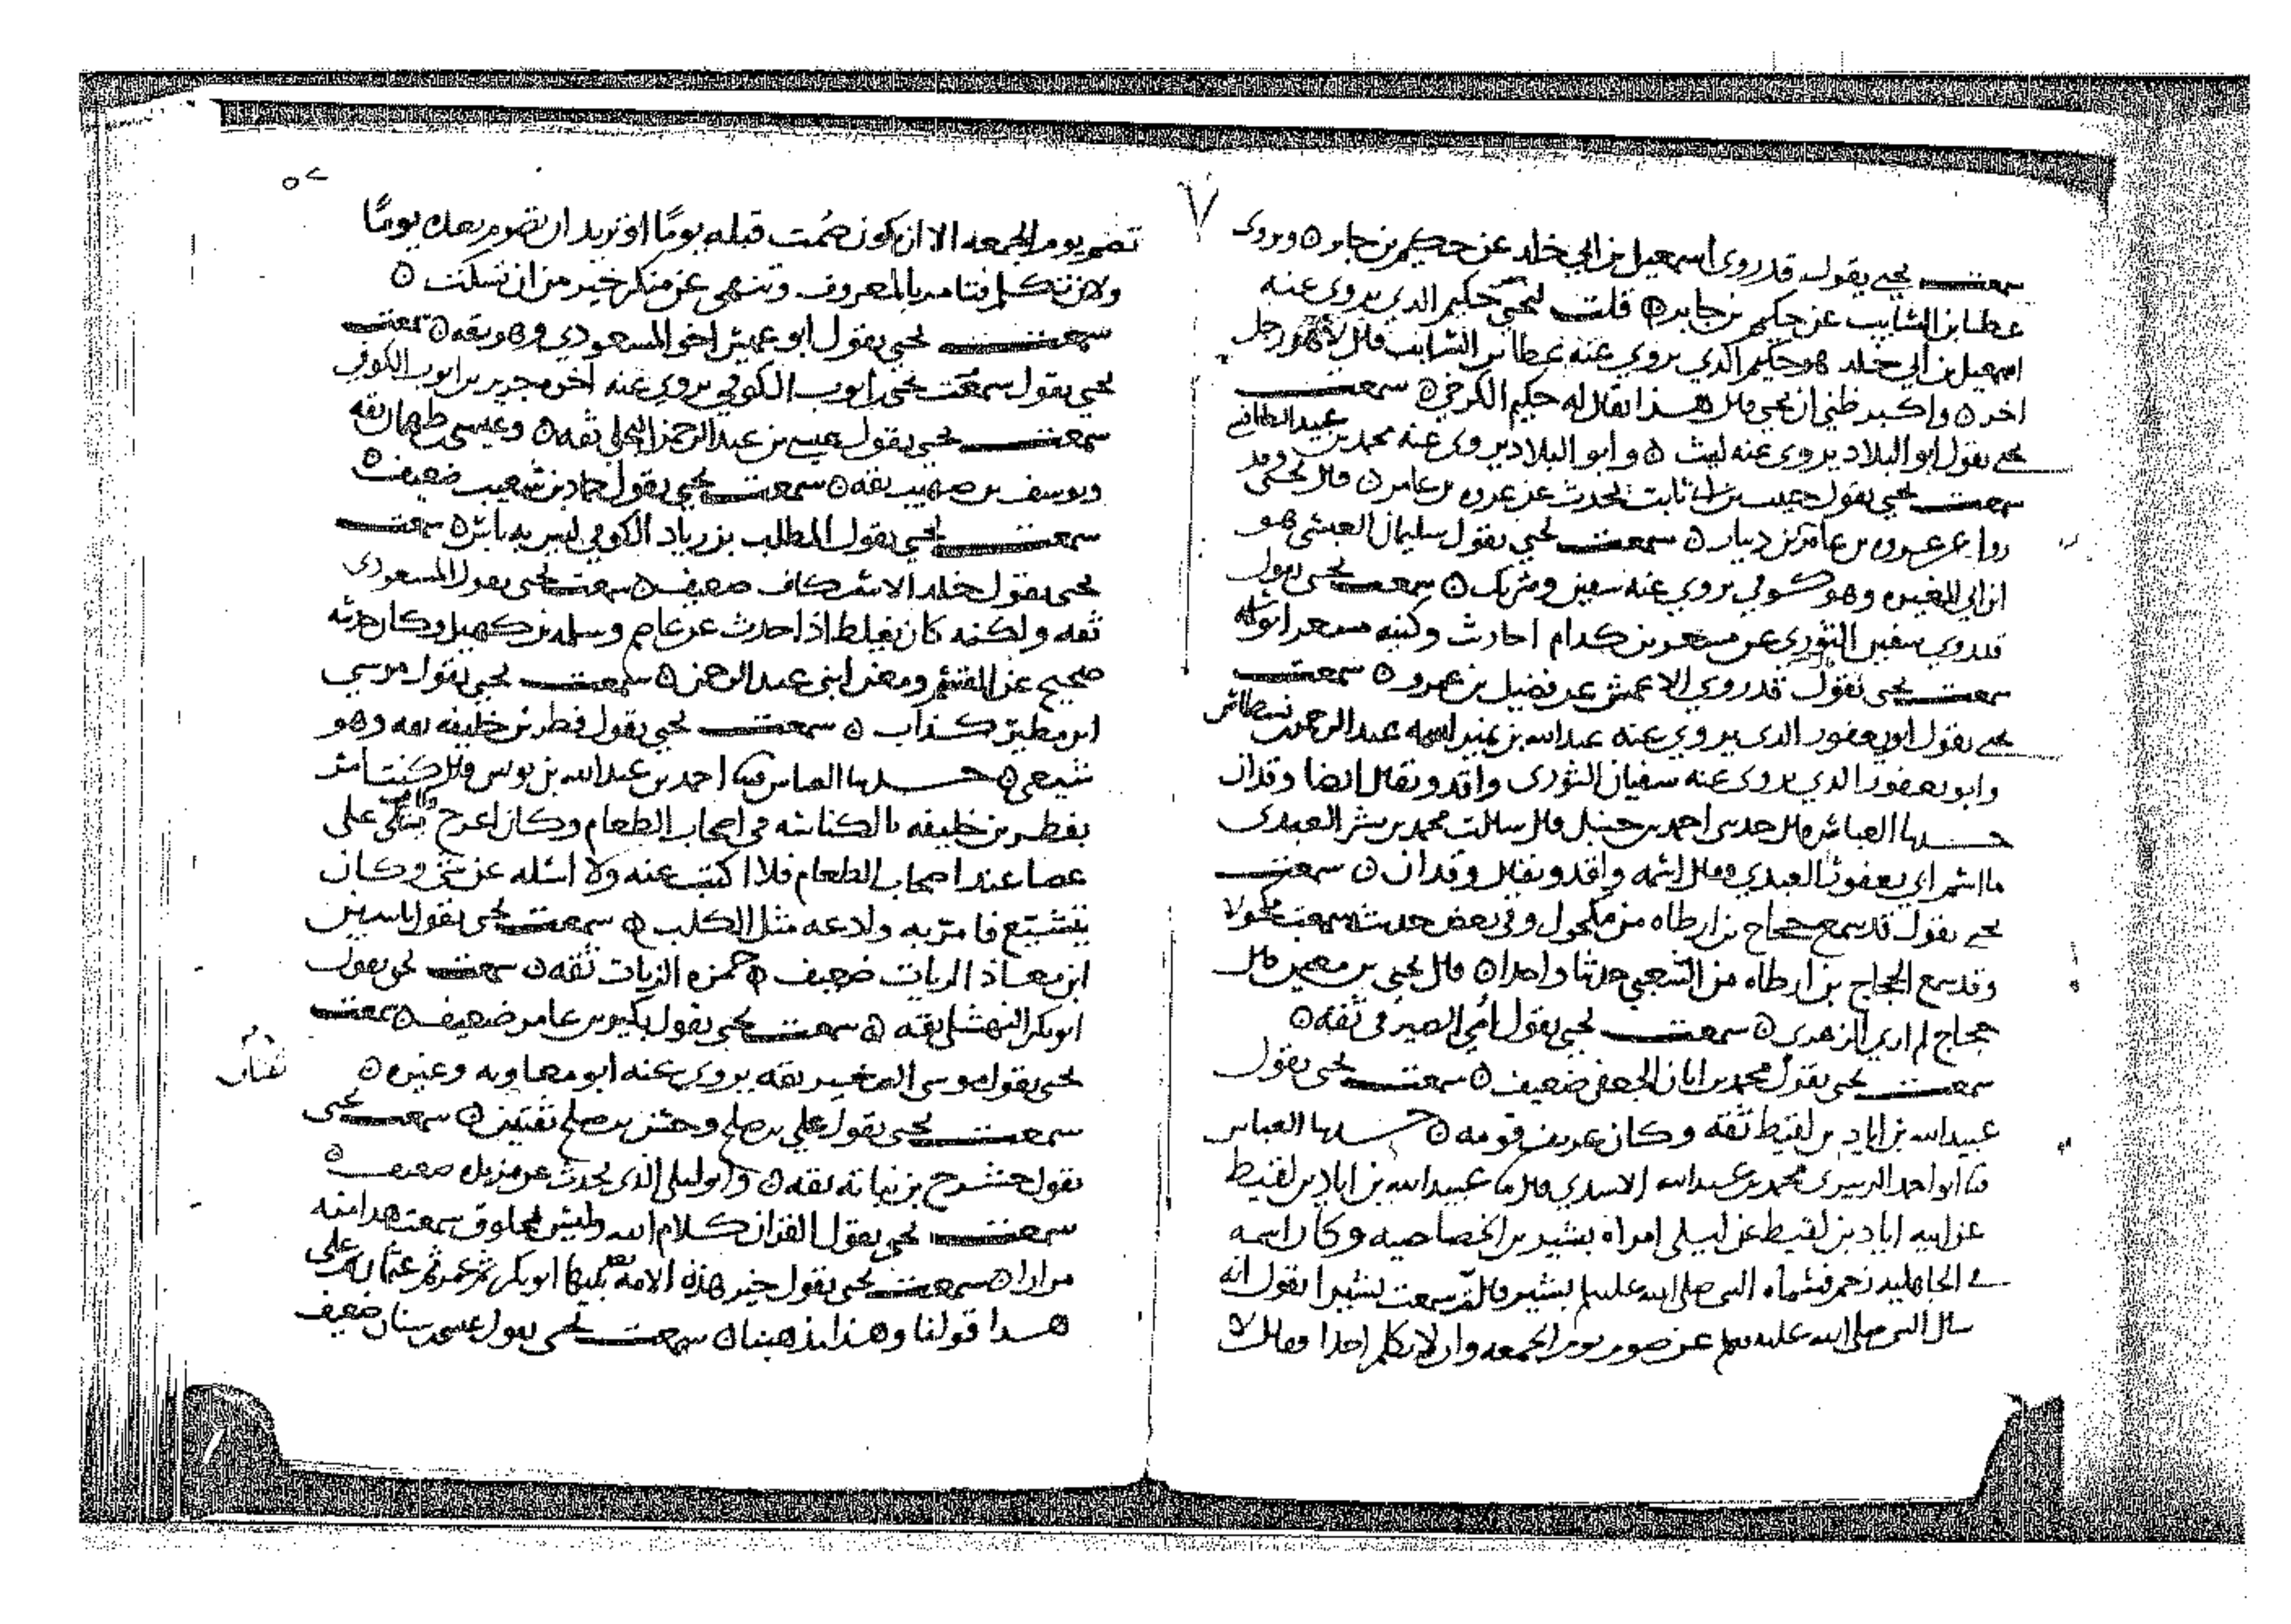 سمعت يحيى يقول قد روى اسمعيل بن ابي خلد عن حكيم بن جابر ه وىروى
عطا بن السايب عن حكيم بن جابر ه قلت ليحيى حكيم الذي يروى عنه
اسمعيل بن ابي خلد هو حكيم الذي يروي عنه عطا بن السايب قال لا هو رجل
اخر ه واكبر ظني ان يحيى قال هذا يقال له حكيم الكرخي ه سمعت
يحيى يقول ابو البلاد يروى عنه ليث ه وابو البلاد يروى عنه محمد بن عبيد الطنافسي
سمعت يحيى يقول حبيب بن ابي ثابت يحدث عن عروه بن عامر ه قال يحيى وقد
روا عن عروه بن عامر عمرو بن دينار ه سمعت يحيى يقول سليمان العبسي هو
ابن ابي المغيره وهو كوفي يروي عنه سفين وشريك ه سمعت يحيى يقول
قد روى سفين الثوري عن مسعر بن كدام احاديث وكنيه مسعر ابو سلمه
سمعت يحيى يقول قد روى الاعمش عن فضيل بن عمرو ه سمعت
يحيى يقول ابو يعفور الذي يروي عنه عبدالله بن نمير اسمه عبد الرحمن بن نسطاس
وابو يعفور الذي يروى عنه سفيان الثورى واقد ويقال ايضا وقدان
حدثنا العباس قال حدثني احمد بن حنبل قال سالت محمد بن بشر العبدى
ما اسم ابي يعفور العبدي فقال اسمه واقد ويقال وقدان ه سمعت
يحيى يقول قد سمع حجاج بن ارطاه من مكحول وفي بعض حديثه سمعت مكحولا
وقد سمع الحجاج بن ارطاه من الشعبي حديثا واحدا ه قال يحيى بن معين قال
حجاج لم ارى الزهرى ه سمعت يحيى يقول اُمَي الصيرفي ثقه ه
سمعت يحيى يقول محمد بن ابان الجعفي ضعيف ه سمعت يحيى يقول
عبيد الله بن اياد بن لقيط ثقه وكان عريف قومه ه حدثنا العباس
ثنا ابو احمد الزبيرى محمد بن عبدالله الاسدي قال ثنا عبيد الله بن اياد بن لقيط
عن ابيه اياد بن لقيط عن ليلى امراه بشير بن الخصاصيه وكان اسمه
في الجاهليه زحم فسماه النبي صلى الله عليه وسلم بشير قالت سمعت بشيرا يقول انه
سال النبي صلى الله عليه وسلم عن صوم يوم الجمعه وان لا يكلم احدا فقال لا
تصم يوم الجمعه الا ان يكون صُمت قبله يومًا او تريد ان تصوم بعده يومًا
ولان تتكلم فتامر بالمعروف وتنهى عن منكر خير من ان تسكت ه
سمعت يحيى يقول ابو عميس اخو المسعودي وهو ثقه ه سمعت
يحيى يقول سمعت يحيى بن ايوب الكوفي يروي عنه اخوه جرير بن ايوب الكوفي
سمعت يحيى يقول عيسى بن عبد الرحمن البجلي ثقه ه وعيسى بن طهمان ثقه
ويوسف بن صهيب ثقه ه سمعت يحيى يقول حماد بن شعيب ضعيف ه
سمعت يحيى يقول المطلب بن زياد الكوفي ليس به باس ه سمعت
يحيى يقول خلد الاسكاف ضعيف ه سمعت يحيى يقول المسعودى
ثقه ولكنه كان يغلط اذا حدث عن عاصم وسلمه بن كهيل وكان حديثه
صحيح عن القسم ومعن ابني عبد الرحمن ه سمعت يحيى يقول موسى
ابن مطير كذاب ه سمعت يحيى يقول فطر بن خليفه ثقه وهو
شيعي ه حدثنا العباس ثنا احمد بن عبد الله بن يونس قال كنت امر
بفطر بن خليفه بالكناسه في اصحاب الطعام وكان اعرج يتكي على
عصا عند اصحاب الطعام فلا اكتب عنه ولا اسئله عن شي وكان
يتشيع فامر به ولادعه مثل الكلب ه سمعت يحيى يقول ياسين
ابن معاذ الزيات ضعيف ه حمزه الزيات ثقه ه سمعت يحيى يقول
ابو بكر النهشلي ثقه ه سمعت يحيى يقول بكير بن عامر ضعيف ه سمعت
يحيى يقول موسى الصغير ثقه يروي عنه ابو معاويه وغيره ه
ثقتان
سمعت يحيى يقول علي بن صلح وحسن بن صلح ثقتين ه سمعت يحيى
يقول حشرج بن نباته ثقه ه وابو ليلى الذي يحدث عن مزيده ضعيف ه
سمعت يحيى يقول القران كلام الله وليس بمخلوق سمعت هذا منه
مرارا ه سمعت يحيى يقول خير هذه الامه بعد نبيها ابو بكر ثم عمر ثم عثمان ثم علي
هذا قولنا وهذا مذهبنا ه سمعت يحيى يقول عيسى بن سنان ضعيف